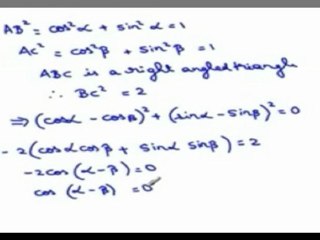 AB² = cos²α + sin²α = 1
AC² = cos²β + sin²β = 1
ABC is a right angled triangle
∴ BC² = 2
⇒ (cosα - cosβ)² + (sinα - sinβ)² = 0
- 2(cosα cosβ + sinα sinβ) = 2
-2cos (α-β) = 0
cos (α-β) = 0